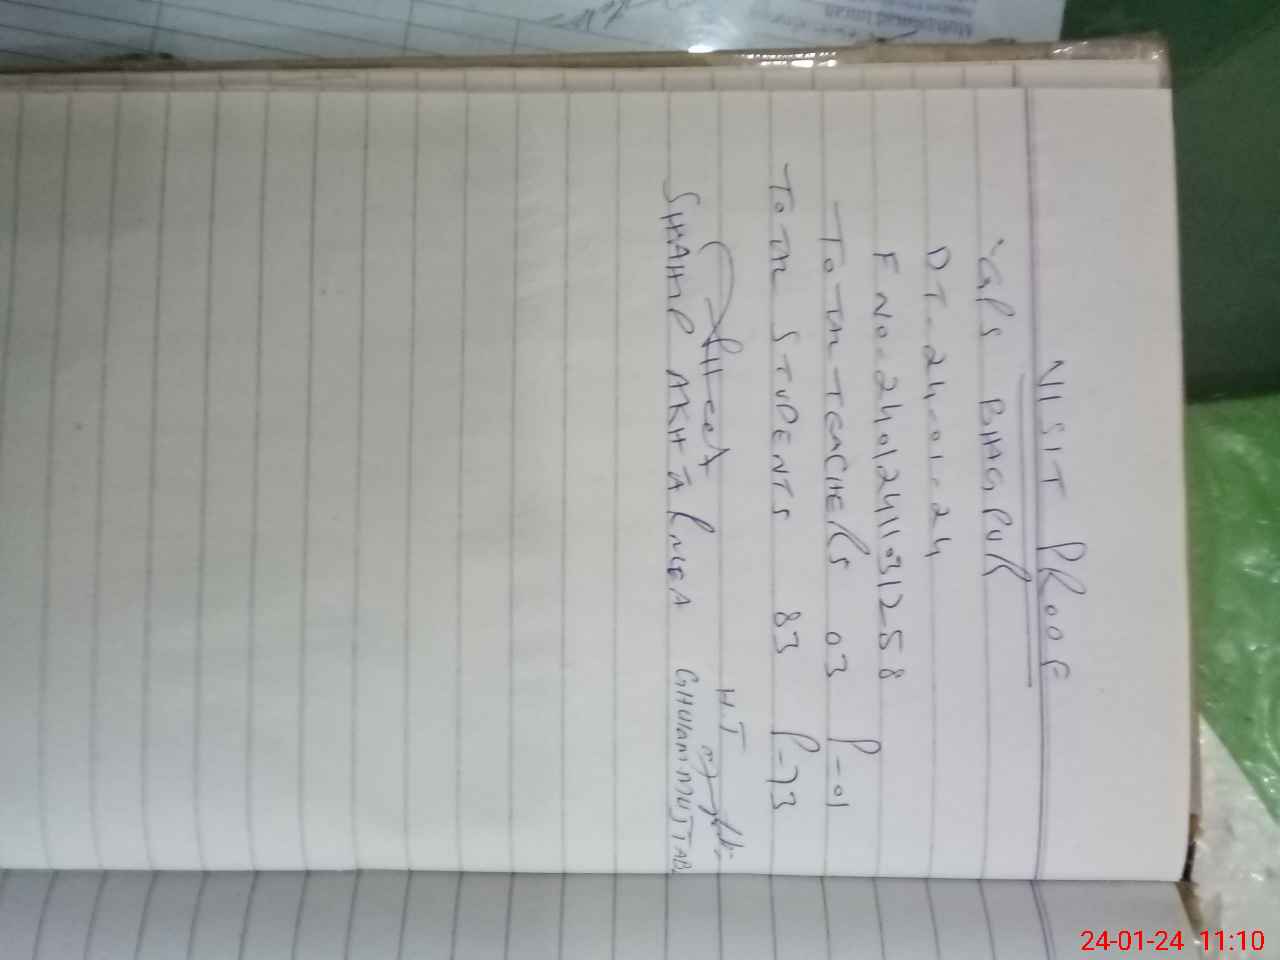 VISIT PROOF
GPS BHAGPUR
DT-24-01-24
F NO-24012411031258
TOTAL TEACHERS 03 P-01
TOTAL STUDENTS 83 P-73
H.T
SHAHID AKHTAR MEA GHULAM MUJTAB
24-01-24 11:10